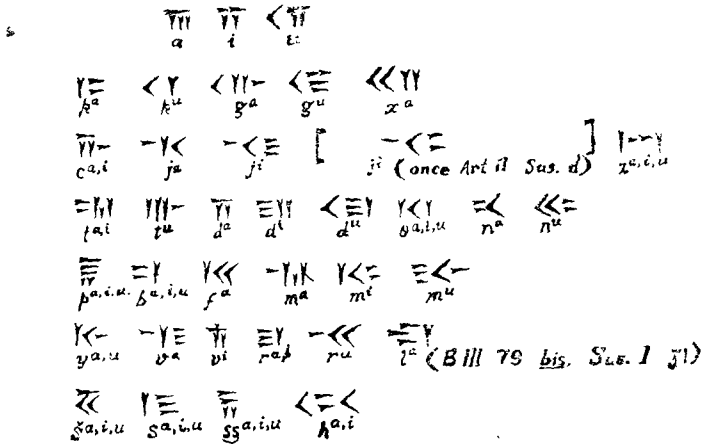 𐎠 𐎡 𐎢
a i u
𐎣 𐎤 𐎥 𐎦 𐎧
kᵃ kᵘ gᵃ gᵘ xᵃ
𐎨 𐎩 𐎪 [ ] 𐏀
cᵃ,ⁱ jᵃ jⁱ jⁱ (once Art II Sus. d) zᵃ,ⁱ,ᵘ
𐎫 𐎬 𐎭 𐎮 𐎯 𐎰 𐎴 𐎵
tᵃ,ⁱ tᵘ dᵃ dⁱ dᵘ θᵃ,ⁱ,ᵘ nᵃ nᵘ
𐎱 𐎲 𐎳 𐎶 𐎷 𐎸
pᵃ,ⁱ,ᵘ. bᵃ,ⁱ,ᵘ fᵃ mᵃ mⁱ mᵘ
𐎹 𐎺 𐎻 𐎼 𐎽 𐎾
yᵃ,ᵘ vᵃ vⁱ rᵘ lᵃ (B III 78 bis, Sus. I)
𐏁 𐎿 𐏂 𐏃
šᵃ,ⁱ,ᵘ sᵃ,ⁱ,ᵘ ssᵃ,ⁱ,ᵘ hᵃ,ⁱ